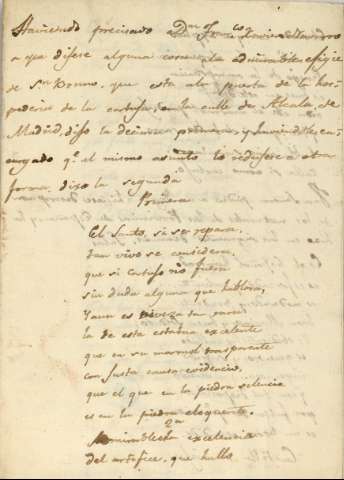 Haviendo precisado a Dn Josef Frco Xavier
a qe dijese alguna cosa a la admirable efigie
de Sn Bruno, que esta a la puerta de la hos-
pederia de la cartuja, en la calle de Alcala, de
Madrid, dijo la decima primera, y haviendole en-
cargado qe el mismo asunto lo redujese a otra
forma, dijo la segunda
Primera
El Santo, si se repara,
tan vivo se considera,
que si cartujo no fuera
sin duda alguna que hablara,
Y aun es viveza tan rara
la de esta estatua excelente
que en su marmol trasparente
con justa causa evidencio,
que el que en la piedra silencio
es en la piedra eloquente.
2a
Admirable la excelencia
del artifice, que hallo